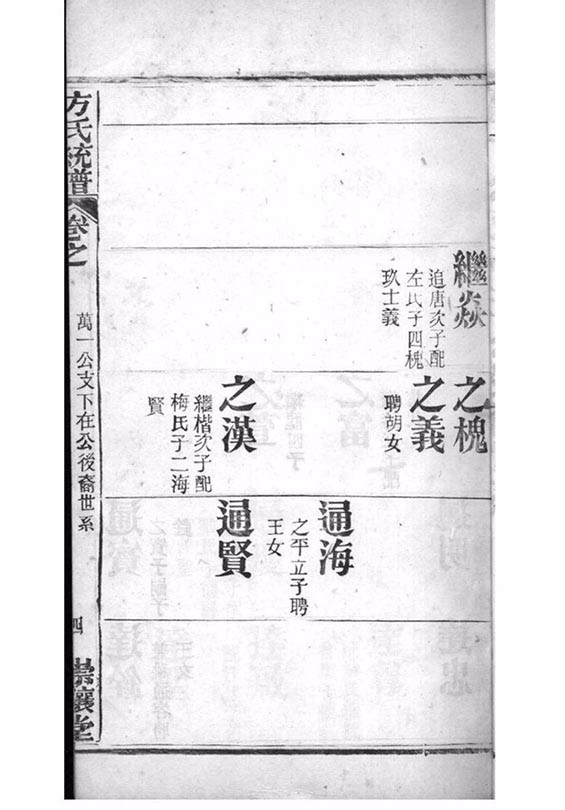 繼焱
追唐次子配
左氏子四槐
玖士義
之槐
之義
聘胡女
之漢
繼楷次子配
梅氏子二海
賢
通海
之平立子聘
王女
通賢
方氏統譜
卷之
萬一公支下在公後裔世系
四
崇讓堂